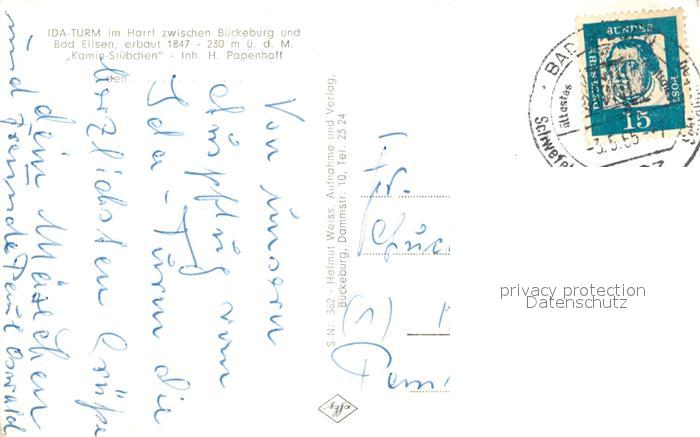 IDA-TURM im Harrl zwischen Bückeburg und
Bad Eilsen, erbaut 1847 - 230 m ü. d. M.
„Kamin-Stübchen" - Inh. H. Papenhoff
den
Von unserm
Ausflug vom
Ida-Turm die
herzlichsten Grüße
dein Mäxchen
und Freunde Paul Oswald
S Nr. 362 - Helmut Weiss, Aufnahme und Verlag,
Bückeburg, Dammstr. 10, Tel. 23 24
Fr.
DEUTSCHE BUNDESPOST
15
BAD
ältestes
-3.5.65
privacy protection
Datenschutz